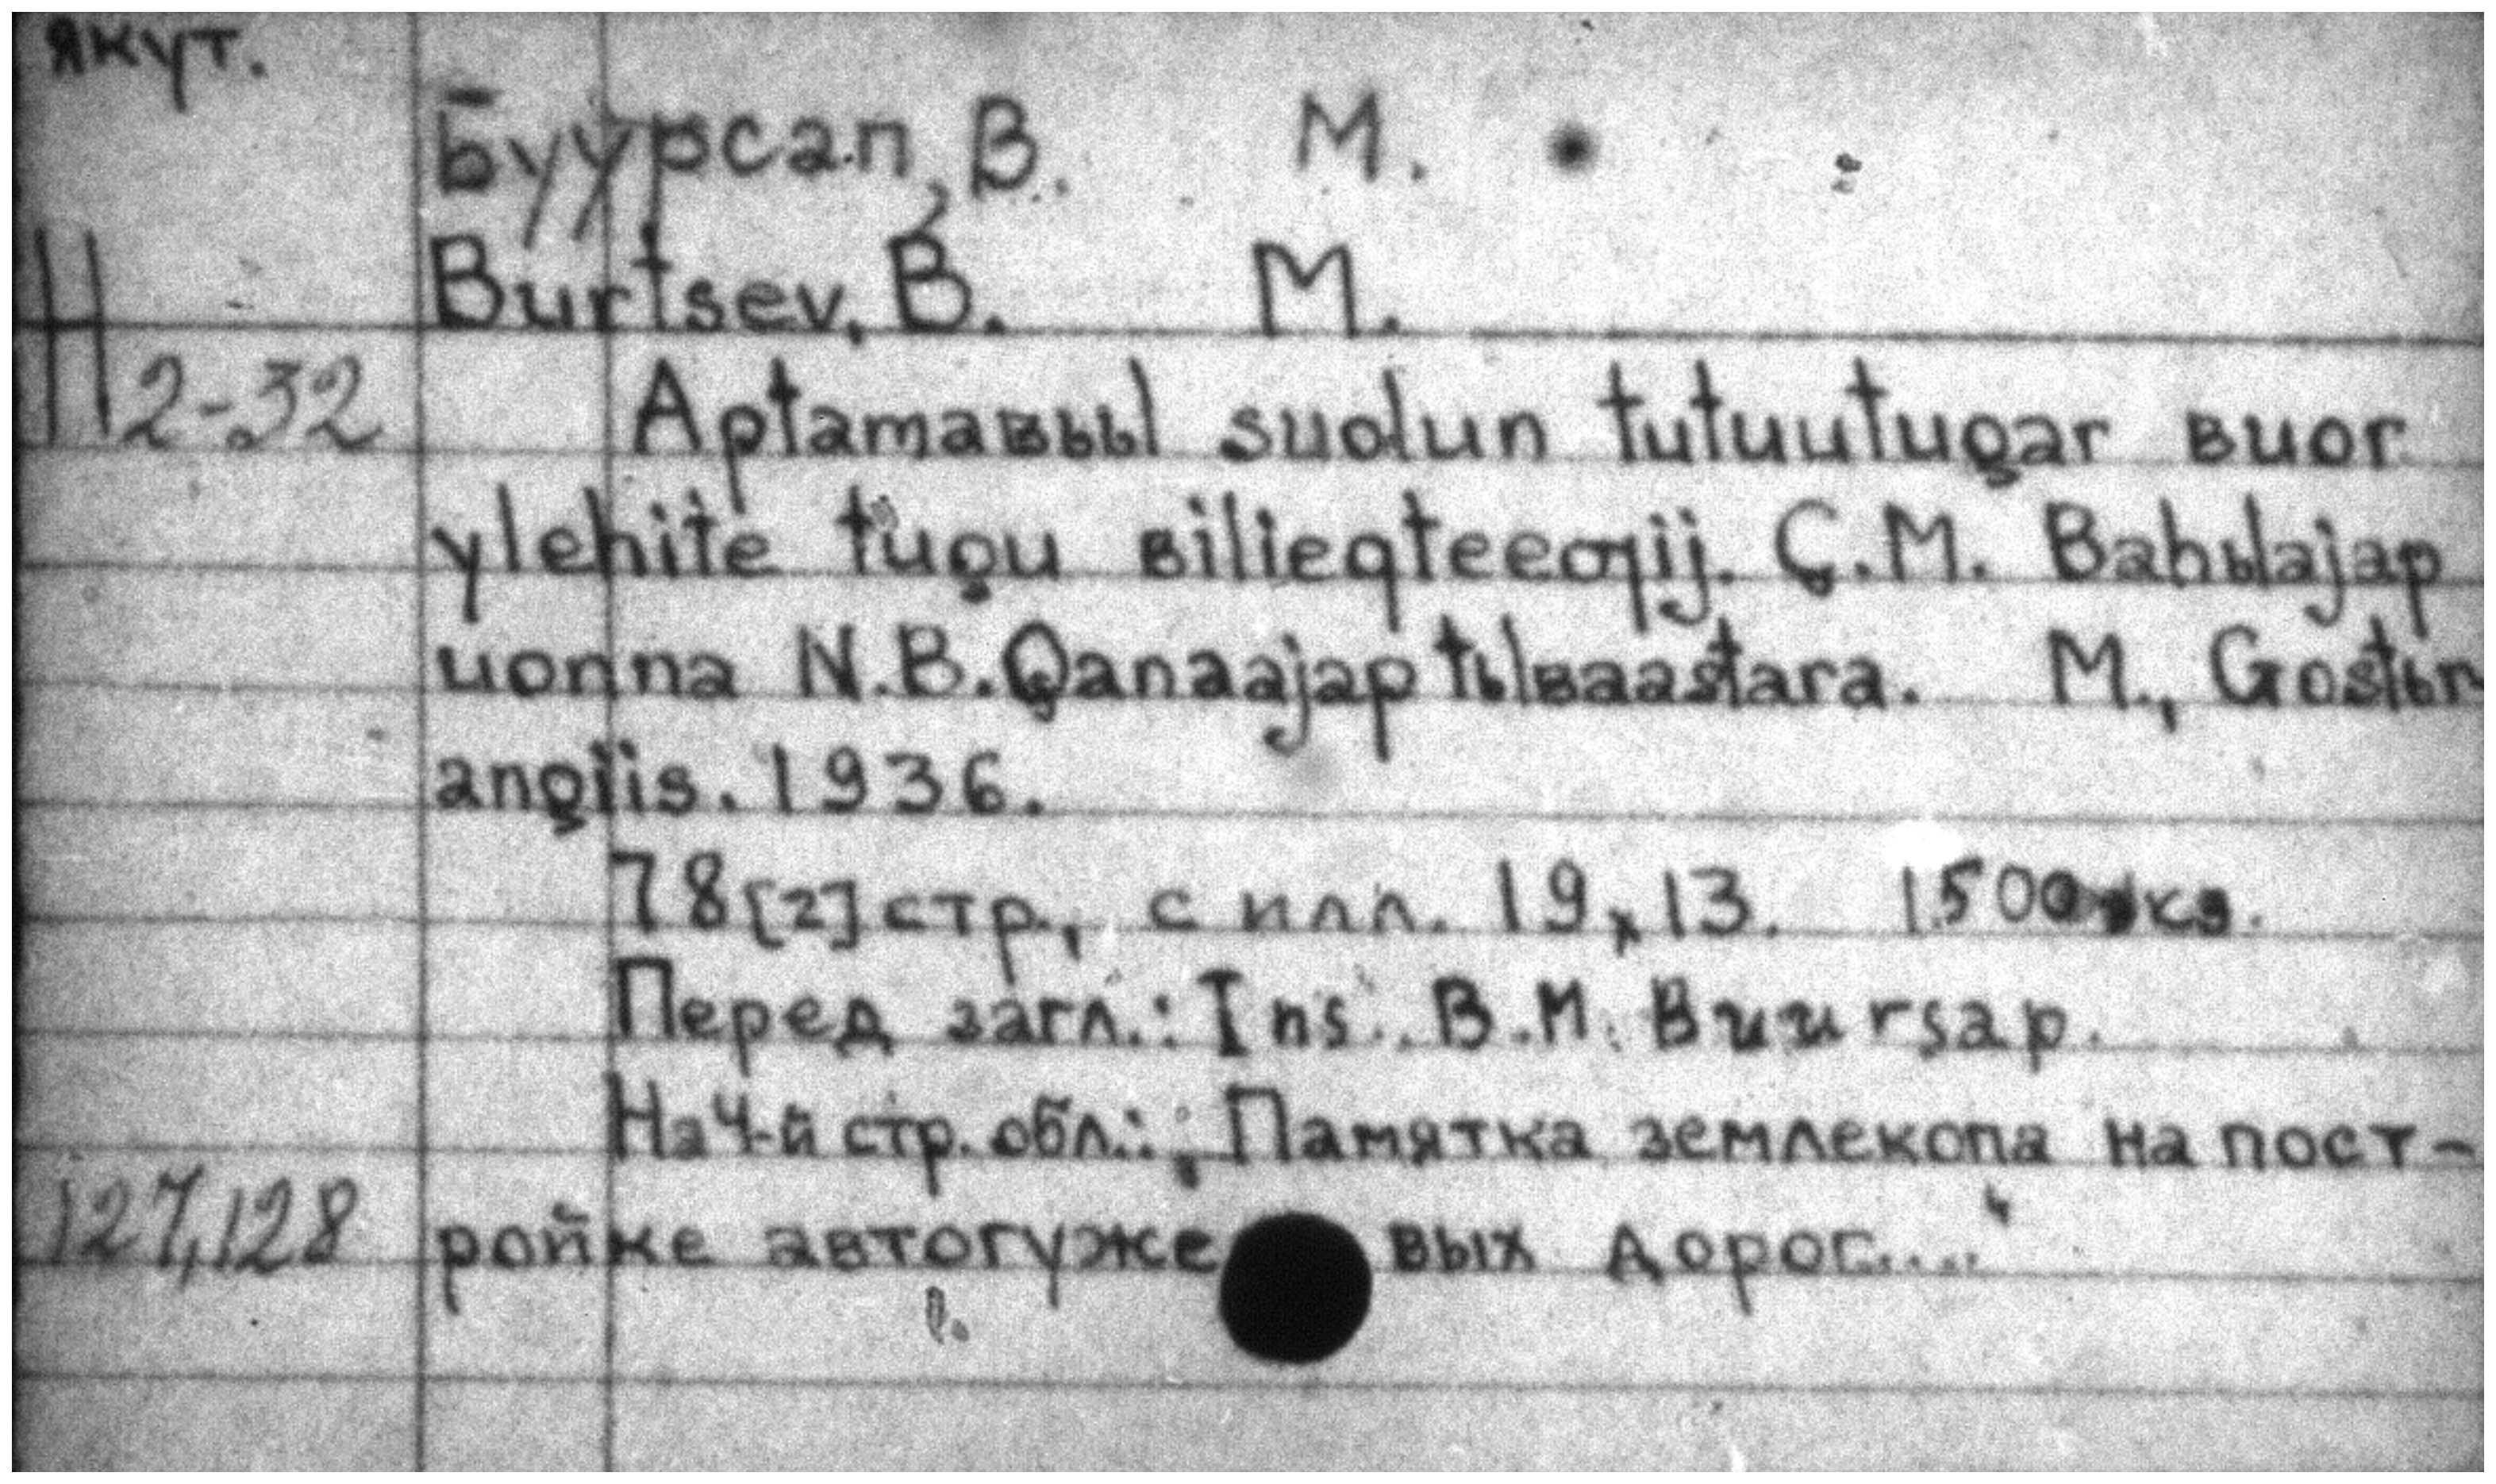 якут.
Буурсап, В. М.
Burtsev, B. M.
H2-32
Aptamaвььl suolun tutuutugar вuor
ylehite tuƣu вilieqteeƣij. Ç.M. Bahьlajap
uonna N.B. Qanaajap tьlвaastara. M., Gostьr
anƣiis. 1936.
78 [2] стр., с илл. 19x13. 1500 экз.
Перед загл.: Ins. B.M. Buurşap.
На 4-й стр. обл.: „Памятка землекопа на пост-
127,128 ройке автогужевых дорог...."